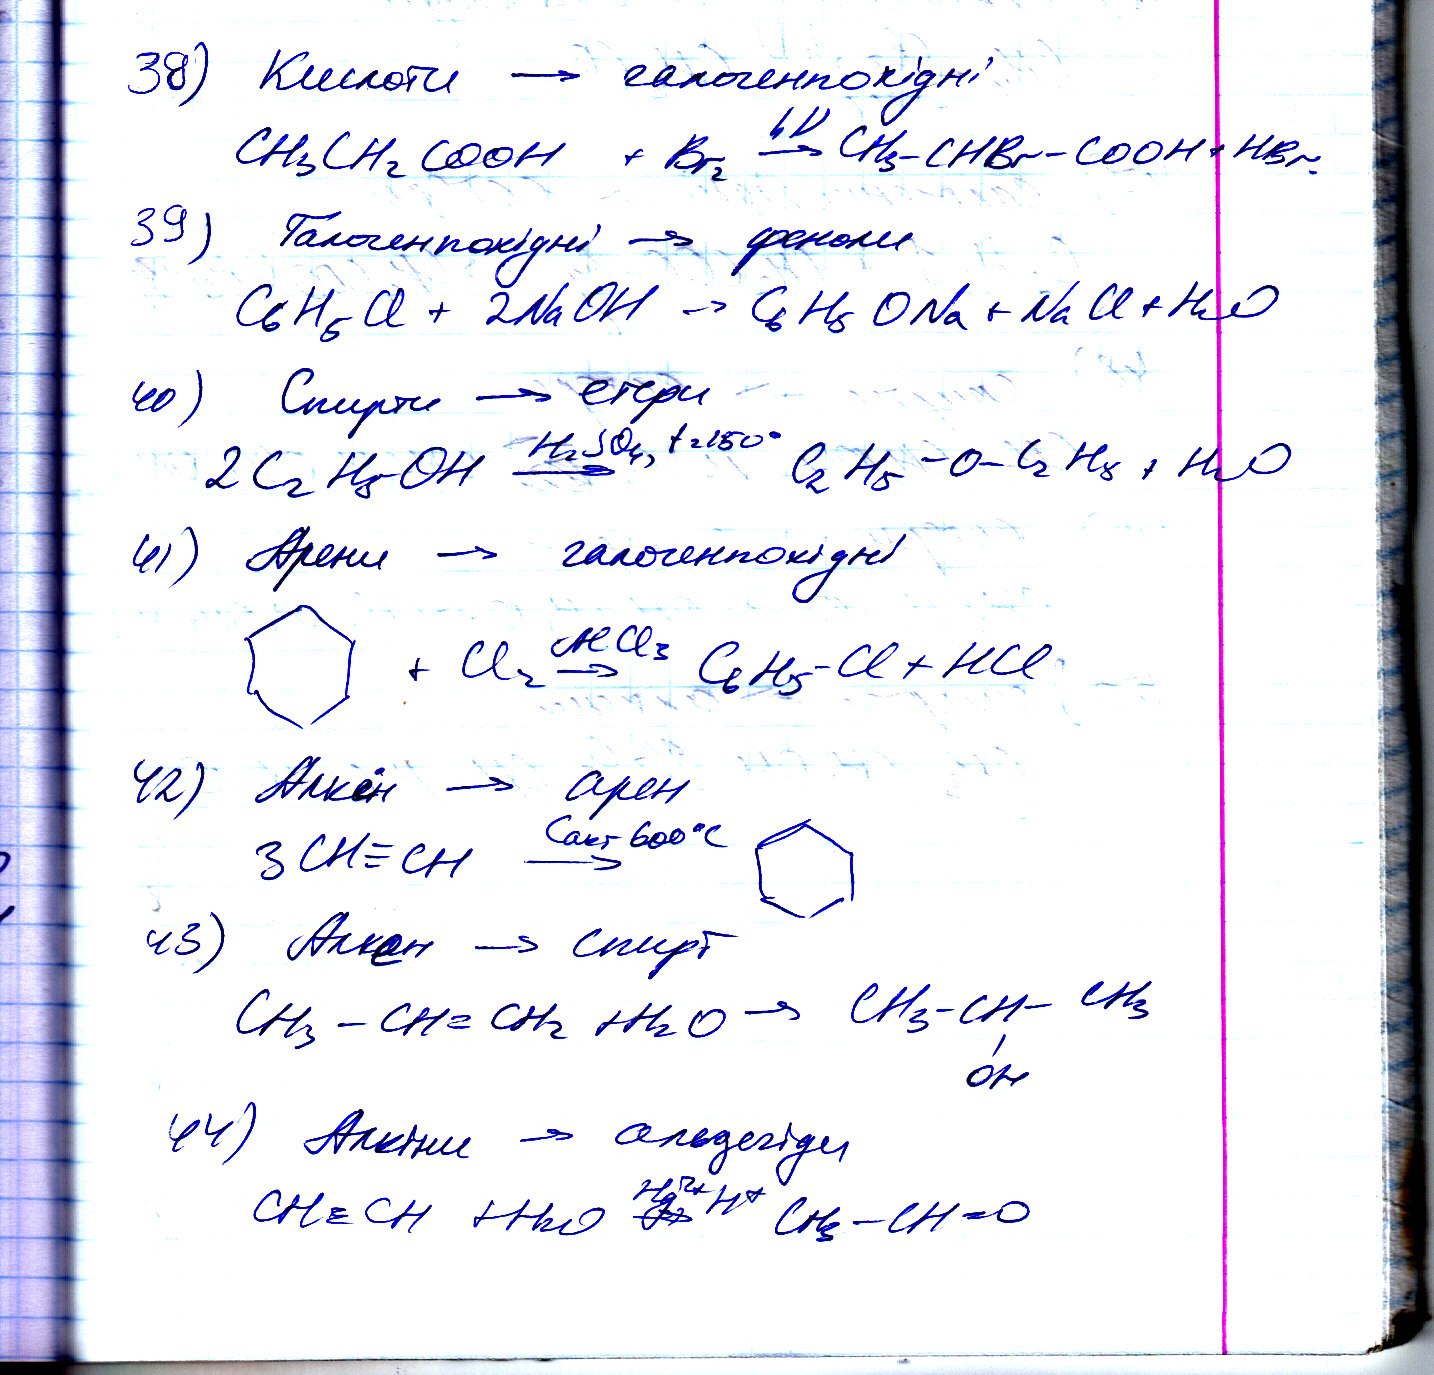 38) Кислоти → галогенпохідні
CH₃CH₂COOH + Br₂ —hν→ CH₃-CHBr-COOH + HBr.
39) Галогенпохідні → феноли
C₆H₅Cl + 2NaOH → C₆H₅ONa + NaCl + H₂O
40) Спирти → етери
2C₂H₅OH —H₂SO₄, t=150°→ C₂H₅-O-C₂H₅ + H₂O
41) Арени → галогенпохідні
+ Cl₂ —AlCl₃→ C₆H₅-Cl + HCl
42) Алкін → арен
3CH≡CH —Cакт 600°C→
43) Алкен → спирт
CH₃-CH=CH₂ + H₂O → CH₃-CH-CH₃
OH
44) Алкіни → альдегіди
CH≡CH + H₂O —Hg²⁺ H⁺→ CH₃-CH=O